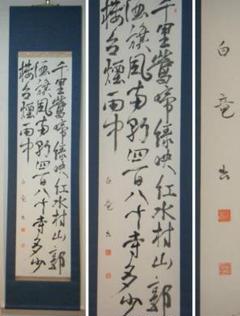 千里鶯啼緑映紅水村山郭
酒旗風南朝四百八十寺多少
楼台煙雨中
白
書
千里鶯啼緑映紅水村山郭
酒旗風南朝四百八十寺多少
楼台煙雨中
白
書
白
書